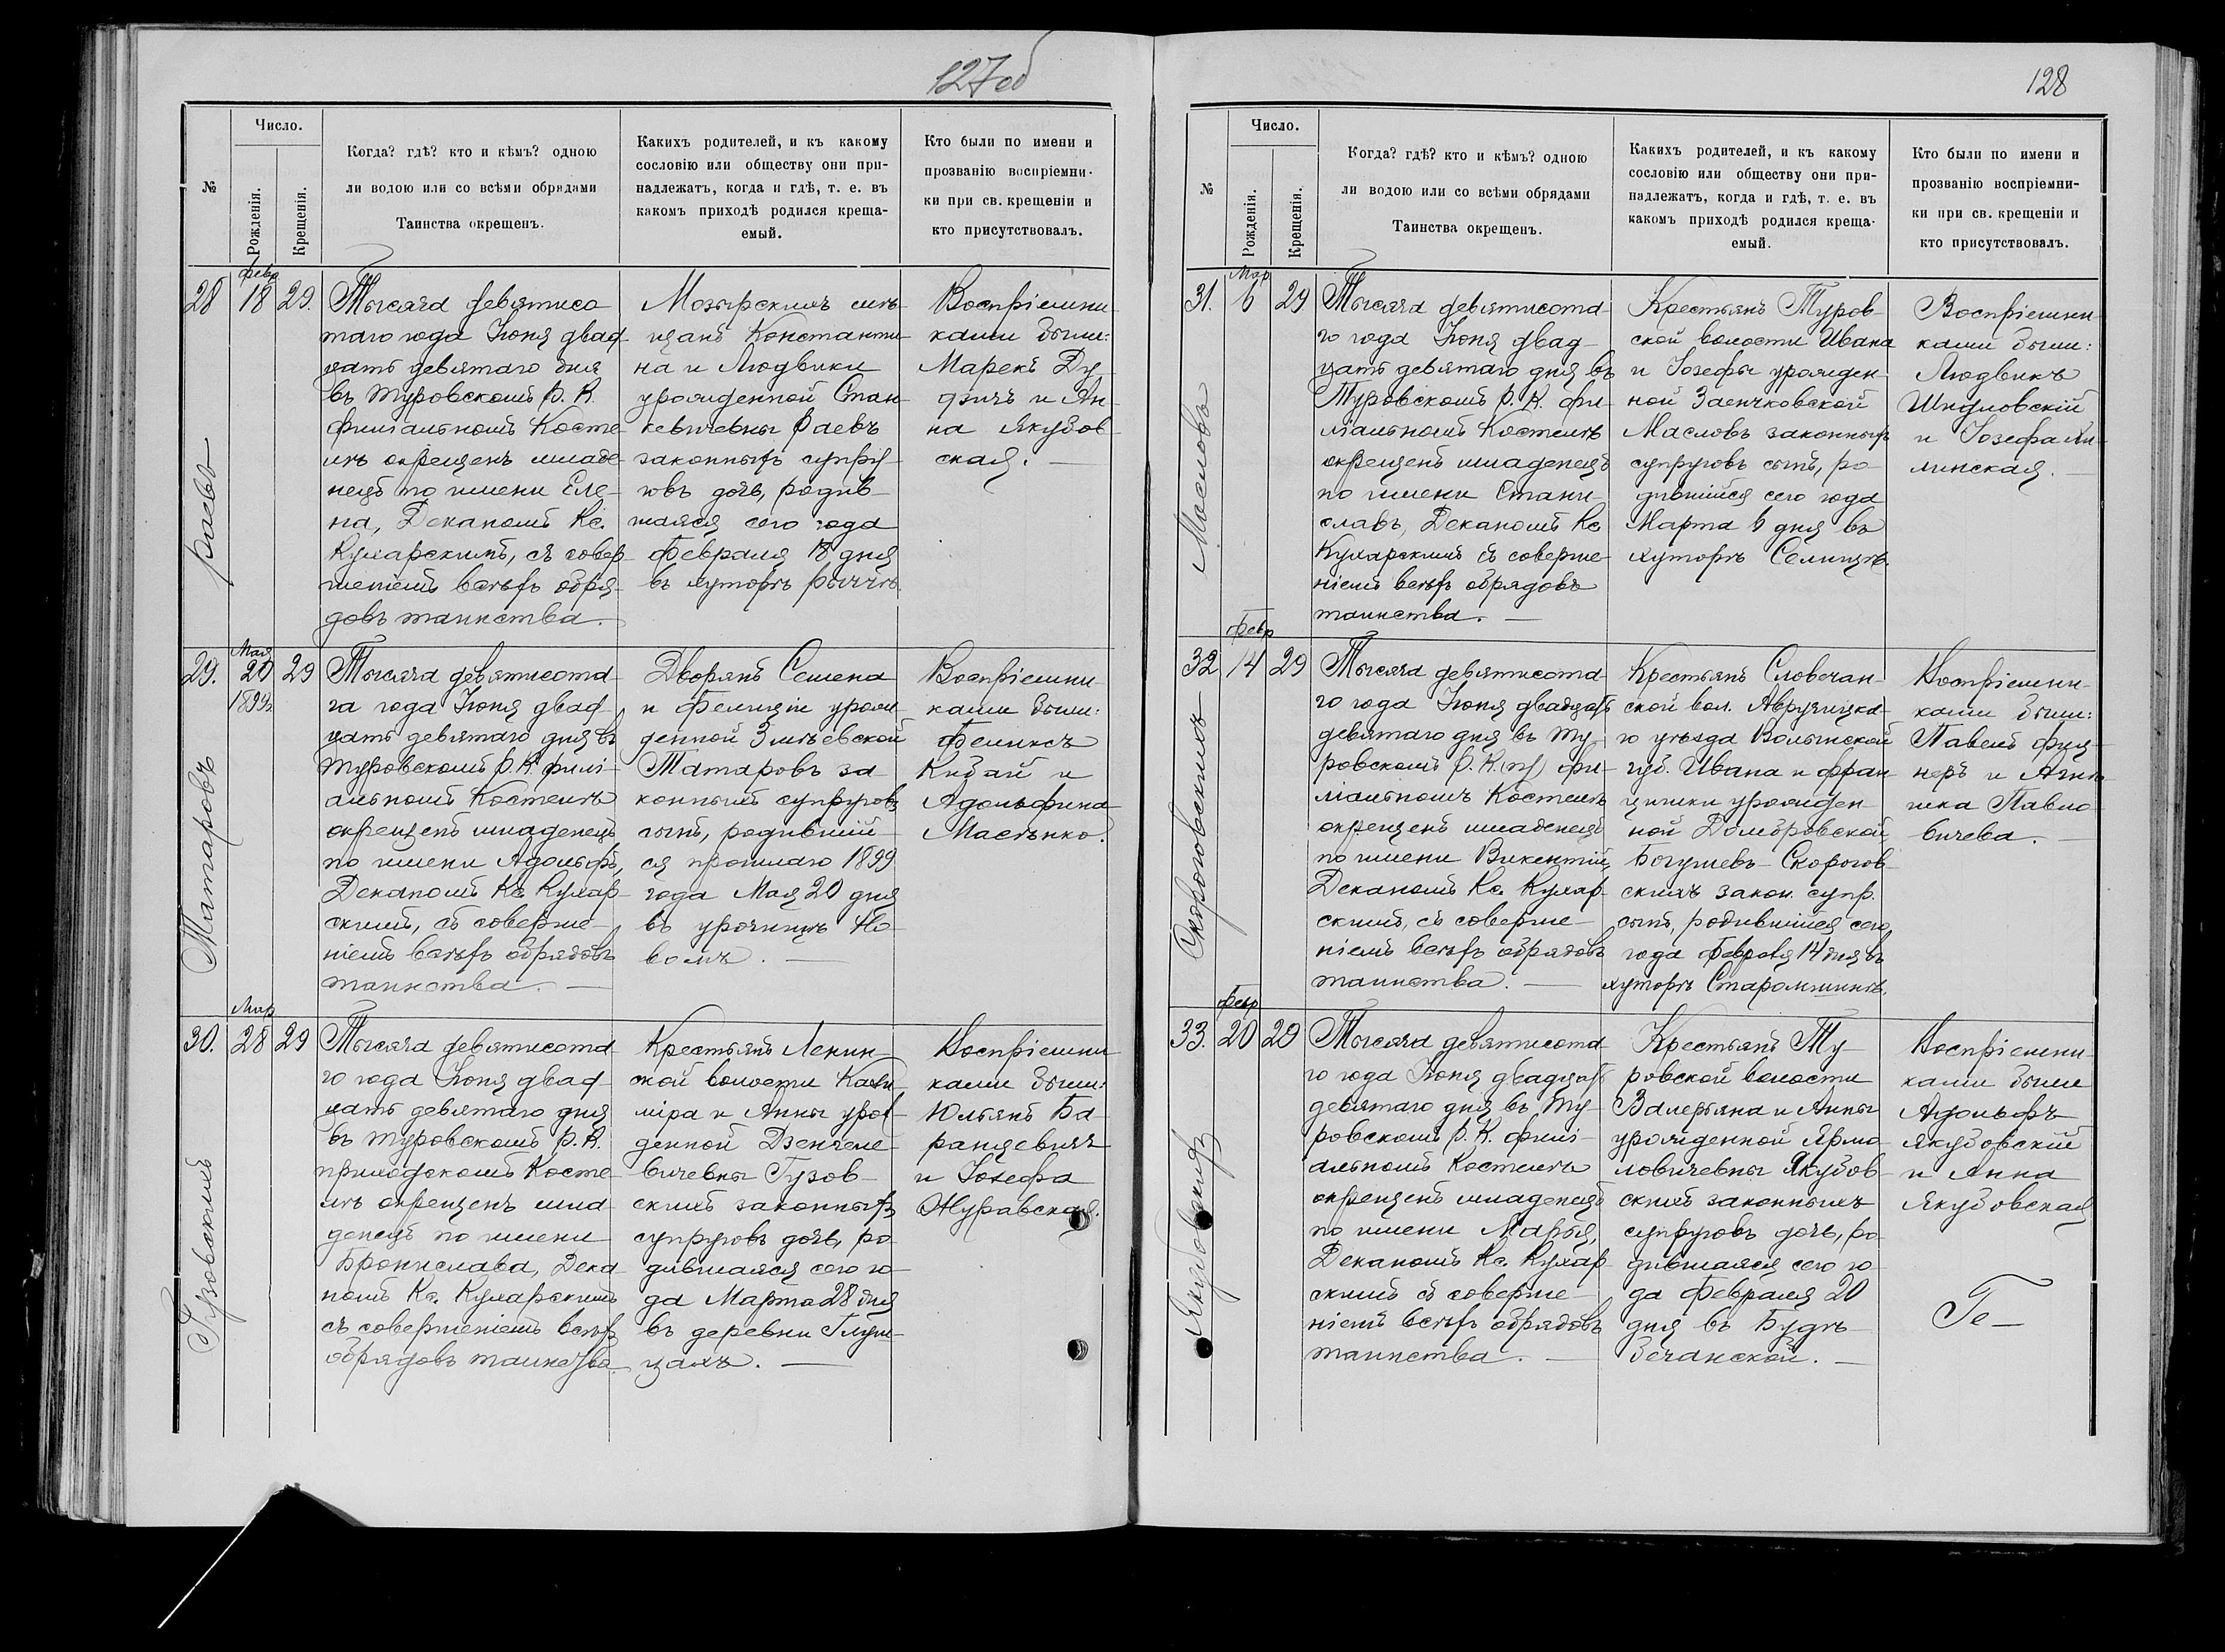 127об
№
Число.
Рожденія.
Крещенія.
Когда? гдѣ? кто и кѣмъ? одною
ли водою или со всѣми обрядами
Таинства окрещенъ.
Какихъ родителей, и къ какому
сословію или обществу они при-
надлежатъ, когда и гдѣ, т. е. въ
какомъ приходѣ родился креща-
емый.
Кто были по имени и
прозванію воспріемни-
ки при св. крещеніи и
кто присутствовалъ.
28
февр
18
29.
Раевъ
Тысяча девятисо
таго года Іюня двад
цать девятаго дня
въ Туровскомъ Р. К.
филіальномъ Косте
лѣ окрещенъ младе
нецъ по имени Еле-
на, Деканомъ Кс.
Кухарскимъ, съ совер
шеніемъ всѣхъ обря-
довъ таинства.
Мозырскихъ мѣ-
щанъ Константи
на и Людвики
урожденной Стан
кевичевны Раевъ
законныхъ супру-
говъ дочь, родив-
шаяся сего года
Февраля 18 дня
въ хуторѣ Рыччѣ.
Воспріемни
ками были:
Марекъ Ду
дзичъ и Ан-
на Якубов
ская. —
29.
Мая
20
1899г.
29
Татаровъ
Тысяча девятисота
га года Іюня двад
цать девятаго дня въ
Туровскомъ Р. К. филі-
альномъ Костелѣ
окрещенъ младенецъ
по имени Адольфъ,
Деканомъ Кс. Кухар
скимъ, съ соверше-
ніемъ всѣхъ обрядовъ
таинства. —
Дворянъ Семена
и Фелиціи урож
денной Змѣевской
Татаровъ за
конныхъ супруговъ
сынъ, родившій
ся прошлаго 1899
года Мая 20 дня
въ урочищѣ Но-
вомъ. —
Воспріемни
ками были:
Феликсъ
Кибай и
Адольфина
Масѣнко.
30.
Мар
28
29
Гузовскихъ
Тысяча девятисота
го года Іюня двад
цать девятаго дня
въ Туровскомъ Р. К.
приходскомъ Косте
лѣ окрещенъ мла
денецъ по имени
Брониславa, Дека
номъ Кс. Кухарскимъ
съ совершеніемъ всѣхъ
обрядовъ таинства.
Крестьянъ Ленин-
ской волости Кази
міра и Анны урож
денной Дзенгеле
вичевны Гузов-
скихъ законныхъ
супруговъ дочь, ро
дившаяся сего го
да Марта 28 дня
въ деревни Глуш-
цахъ. —
Воспріемни
ками были:
Юльянъ Ба
ранцевичъ
и Іозефа
Журавская.
128
№
Число.
Рожденія.
Крещенія.
Когда? гдѣ? кто и кѣмъ? одною
ли водою или со всѣми обрядами
Таинства окрещенъ.
Какихъ родителей, и къ какому
сословію или обществу они при-
надлежатъ, когда и гдѣ, т. е. въ
какомъ приходѣ родился креща-
емый.
Кто были по имени и
прозванію воспріемни-
ки при св. крещеніи и
кто присутствовалъ.
31.
Мар
6
29.
Масловъ
Тысяча девятисота
го года Іюня двад-
цать девятаго дня въ
Туровскомъ Р. К. фи-
ліальномъ Костелѣ
окрещенъ младенецъ
по имени Стани
славъ, Деканомъ Кс.
Кухарскимъ съ соверше-
ніемъ всѣхъ обрядовъ
таинства. —
Крестьянъ Туров-
ской волости Ивана
и Іозефы урожден
ной Заенчковской
Масловъ законныхъ
супруговъ сынъ, ро-
дившійся сего года
Марта 6 дня въ
хуторѣ Селищѣ.
Воспріемни
ками были:
Людвикъ
Шидловскій
и Іозефа
линская. —
32
Февр
14
29
Скороговскихъ
Тысяча девятисота
го года Іюня двадцать
девятаго дня въ Ту-
ровскомъ Р. К. фи-
ліальномъ Костелѣ
окрещенъ младенецъ
по имени Викентій,
Деканомъ Кс. Кухар
скимъ, съ соверше-
ніемъ всѣхъ обрядовъ
таинства. —
Крестьянъ Словечан-
ской вол. Авручицка-
го уѣзда Волынской
губ. Ивана и Фран
цишки урожден-
ной Домбровской,
Богушевъ-Скорогов
скихъ закон. супр.
сынъ, родившійся сего
года Февраля 14 дня въ
хуторѣ
Воспріемни-
ками были:
Павелъ
и Агнѣ
шка Павло
вичева. —
33.
Февр
20
29
Якубовскихъ
Тысяча девятисота
го года Іюня двадцать
девятаго дня въ Ту-
ровскомъ Р. К. филі-
альномъ Костелѣ
окрещенъ младенецъ
по имени Марья,
Деканомъ Кс. Кухар
скимъ съ соверше-
ніемъ всѣхъ обрядовъ
таинства. —
Крестьянъ Ту-
ровской волости
Валерьяна и Анны
урожденной Ярмо
ловичевны Якубов-
скихъ законныхъ
супруговъ дочь, ро
дившаяся сего го
да Февраля 20
дня въ Будѣ
Вечанской. —
Воспріемни-
ками были
Адольфъ
Якубовскій
и Анна
Якубовская
Ге—